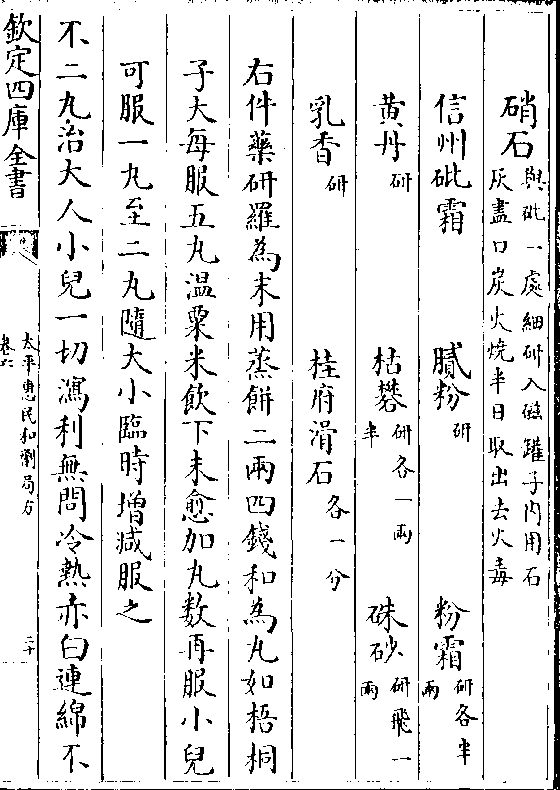 硝石與砒一處細研入磁罐子内用石灰盡口炭火燒半日取出去火毒
信州砒霜 膩粉研 粉霜研各半兩
黄丹研 枯礬研各一兩半 硃砂研飛一兩
乳香研 桂府滑石各一分
右件藥研羅為末用蒸餅二兩四錢和為丸如梧桐
子大每服五丸温粟米飲下未愈加丸數再服小兒
可服一丸至二丸隨大小臨時增減服之
不二丸治大人小兒一切瀉利無問冷熱赤白連綿不
欽定四庫全書
太平惠民和劑局方
卷六
二十